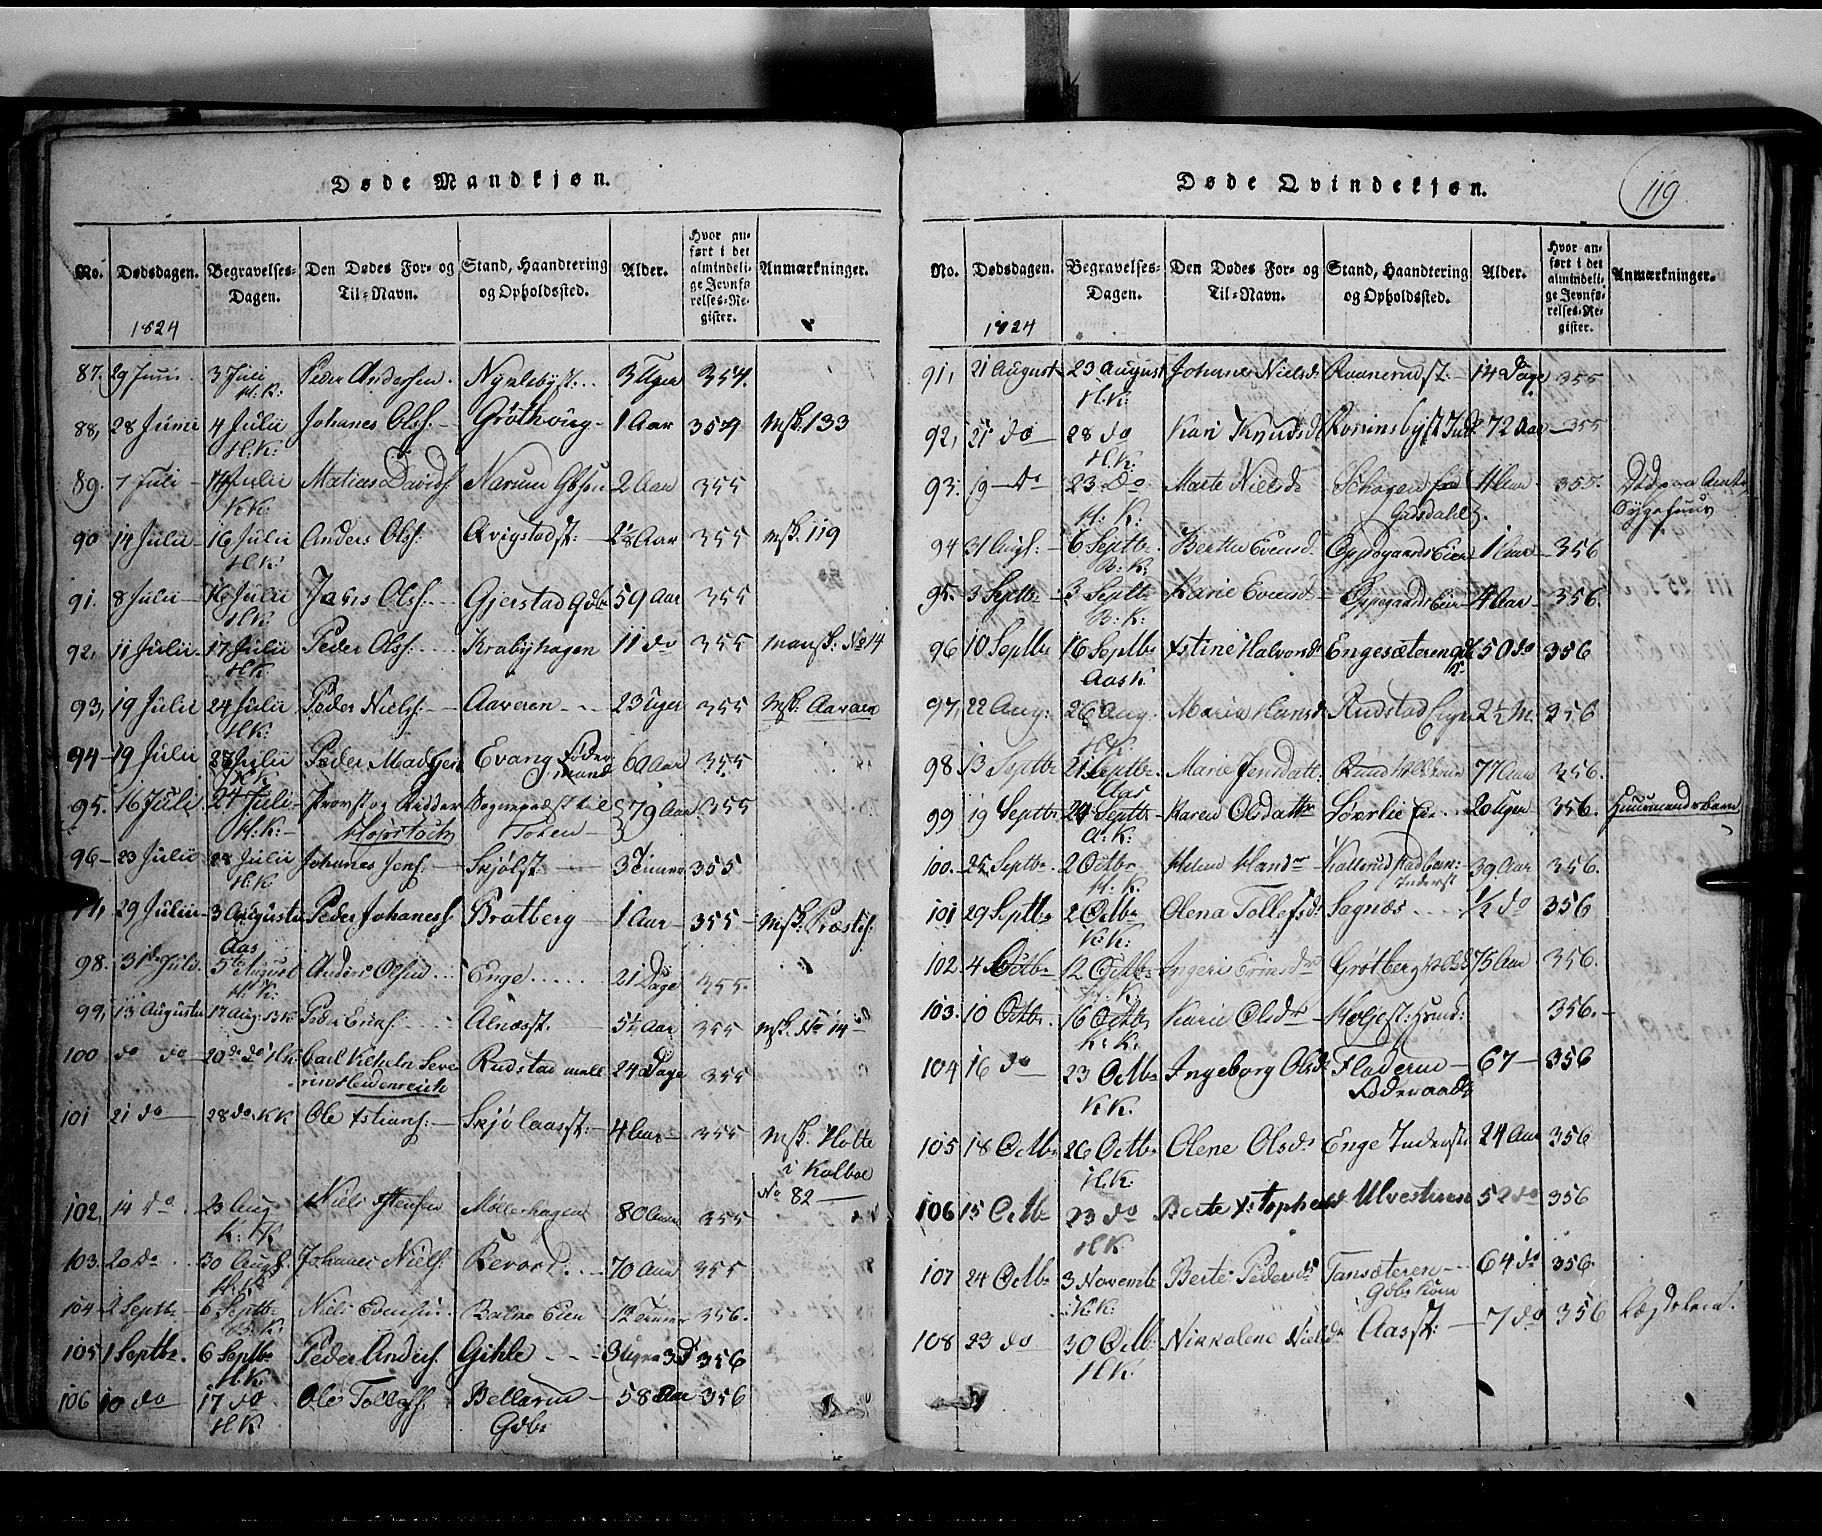 Døde Mandkjøn.
No. Dødsdagen. Begravelses-Dagen. Den Dødes For- og Til-Navn. Stand, Haandtering og Opholdssted. Alder. Hvor anført i det almindelige Jevnførelses-Register. Anmærkninger.
1824
87. 29 Juni 3 Juli H:K: Peder Andersen. Nyolsbyst. 3 Uger 354.
88, 28 Junii 4 Julii H.K: Johanes Ols: Grøthwiig 1 Aar 354 Msk. 133
89. 7 Juli 14 Julii KK: Matias Davids 2 Aar 355
90 14 Julii 16 Julii H.K: Anders Ols: Qvigstadst: 2/8 Aar 355 Msk. 119
91. 8 Julii 16 Julii H.K: Ols: Gjerstad Gdbr 59 Aar 355
92, 11 Julii 17 Julii H.K: Peder Ols: Krabyhagen 11 do 355 mansk: No 14
93, 19 Julii 24 Julii H.K: Peder Niels: Aaveren 23 Uger 355 Msk. Aavaen
94 19 Julii 27 Julii Peder Evang Føder mand 60 Aar 355
95. 16 Juli 24 Juli H.K: Provst og Ridder Sognepræst til Toten 79 Aar 355
96 23 Julii 28 Julii H.K Johanes Jens: Skjølst: 3 Timer 355
29 Julii 3 Augustii Aas Peder Johaness: Bratberg 1 Aar 355 Msk. Præstes:
98. 31 Juli 5te August H:K: Anders Olsen Enge 21 Dage 355.
99, 13 Augustii 17 Aug: BK Peder Ericks: Alnæsst. 5½ Aar 355 Msk. No 14
100 do do 20 do do HK: Carl Vilhelm Severin Heidenreich Rudstad 24 Dage 355
101 21 do 28 do KK Ole Xstians: Skjølaasst: 4 Aar 355 Msk. Holte i Kolboe No 82
102, 14 do 23 Aug K:K Niels Møllerhagen 80 Aar 355
103. 20 do 30 Aug: H:K: Johanes Niels: 70 Aar 355
104 2 Septbr 6 Septbr B:K: Niels Balke Eien 12 Timer 356.
105 1 Septbr. 6 Septbr H.K: Peder Anders: Gihle 3 Uger 3 D 356
106 10 do 17 do H.K: Ole Tollefs: Bellerud Gdbr 58 Aar 356
Døde Qvindekjøn.
119
No. Dødsdagen. Begravelses-Dagen. Den Dødes For- og Til-Navn. Stand, Haandtering og Opholdssted. Alder. Hvor anført i det almindelige Jevnførelses-Register. Anmærkninger.
1824
91, 21 August 29 August H.K: Johanne Nielsd 14 Dage 355
92, 21 do 28 do H.K: Kari Knudsd 72 Aar 355
93. 19 do 23 do H:K: Marte Nielsd Gusdal 355. Død paa Amts Sygehuus
94 31 Aug: 6 Septbr. B:K: Berthe Evensd. Oppegaards Eien 1 Aar 356
95. 3 Septbr 3 Septbr B:K: Karie Evensd Oppegaards Eien 4 Aar 356.
96 10 Septbr 16 Septbr Aas K: Xstine Halvorsdr Engesæteren 50 do 356
97, 22 Aug: 26 Aug: H.K: Maria Hansd Rudstad 2½ M: 356
98 13 Septbr 21 Septbr Aas Marie Jensdatt: 77 Aar 356.
99 19 Septbr 24 Septbr A:K: Karen Olsdattr Sørlie 20 Uger 356. Huusmandsbarn
100. 25 Septbr 2 Octbr H.K: Helene Hansdr Inderst 39 Aar 356.
101 29 Septbr 2 Octbr K:K: Olena Tollefsdr Sagnæs ½ do 356
102. 4 Octbr 12 Octbr H.K: Ingeri Grøtberg 75 Aar 356.
103. 10 Octbr 16 Octbr K:K: Karie Olsdr 356.
104 16 do 23 Octbr KK. Ingeborg Olsdr Fladerud Føderaads 67 356
105 18 Octbr 26 Octbr H.K: Olene Olsdr Enge Inderst 24 Aar 356
106 15 Octbr 23 do H.K Berte Xstophersd Ulvestuen 52 do 356
107 24 Octbr 3 Novembr K.K: Berte Pedersdr Tansæteren Gdbr kone 64 do 356.
108 23 do 30 Octbr H.K Nikkoline Nielsdr Aasst: 7 do 356 Lægdslem.